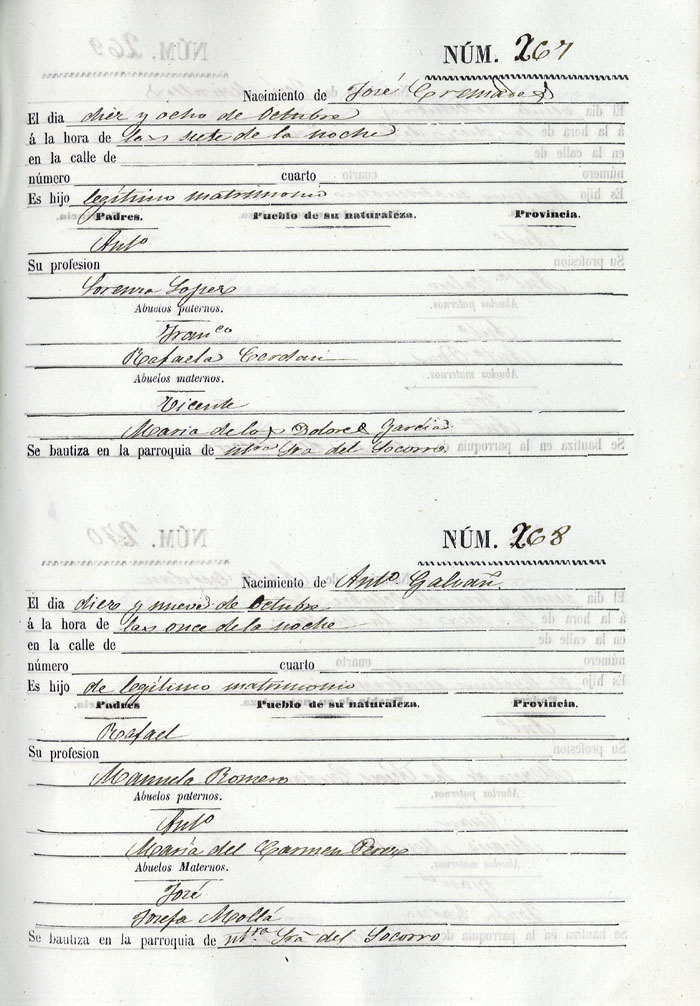 NÚM. 267
Nacimiento de José Cremades
El dia diez y ocho de Octubre
á la hora de las siete de la noche
en la calle de
número cuarto
Es hijo legítimo matrimonio
Padres. Pueblo de su naturaleza. Provincia.
Antº
Su profesion
Lorenza Lopez
Abuelos paternos.
Franco
Rafaela Cerdan
Abuelos maternos.
Vicente
Maria de los Dolores Garcia
Se bautiza en la parroquia de ntra Sra del Socorro.
NÚM. 268
Nacimiento de Antº Galvañ.
El dia diez y nueve de Octubre
á la hora de las once de la noche
en la calle de
número cuarto
Es hijo de legítimo matrimonio
Padres Pueblo de su naturaleza. Provincia.
Rafael
Su profesion
Manuela Romero
Abuelos paternos.
Antº
María del Carmen Perez
Abuelos Maternos.
José
Josefa Mollá
Se bautiza en la parroquia de ntra Sra del Socorro